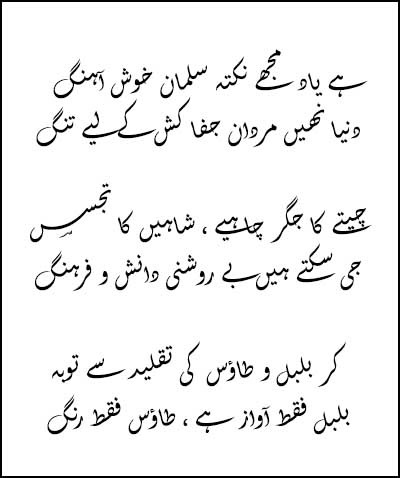 ہے یاد مجھے نکتہ سلمان خوش آہنگ
دنیا نھیں مردان جفا کش کے لیے تنگ
چیتے کا جگر چاہیے ، شاہیں کا تجسس
جی سکتے ہیں بے روشنی دانش و فرہنگ
کر بلبل و طاؤس کی تقلید سے توبہ
بلبل فقط آواز ہے ، طاؤس فقط رنگ